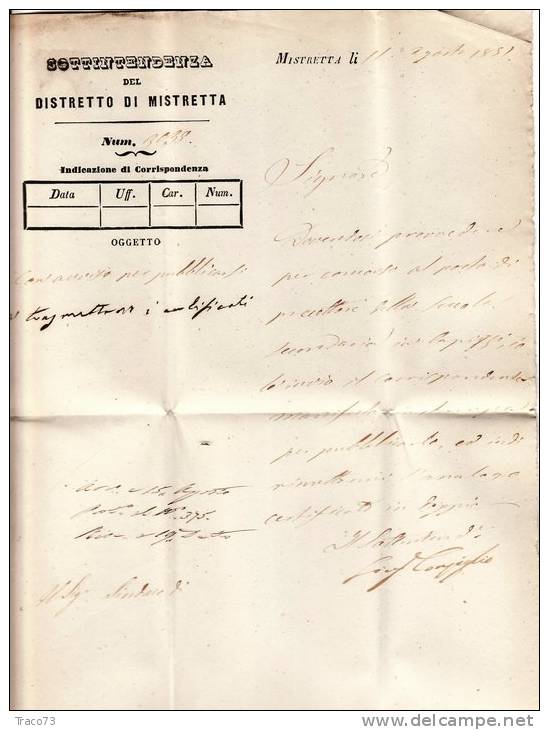 SOTTINTENDENZA
DEL
DISTRETTO DI MISTRETTA
Num. 3638.
Indicazione di Corrispendenza
Data Uff. Car. Num.
OGGETTO
per pubblicarsi
i certificati
MISTRETTA li 11 Agosto 1851
Signore
Dovendosi provvedere
per concorso al posto di
precettore della scuola
secondaria in
lo invio il corrispondente
manifesto
per pubblicarlo, ed indi
l'analogo
certificato in doppio
Il Sottintendte
Agosto
375.
Al Sigr Sindaco di
Traco73
delcampe.net